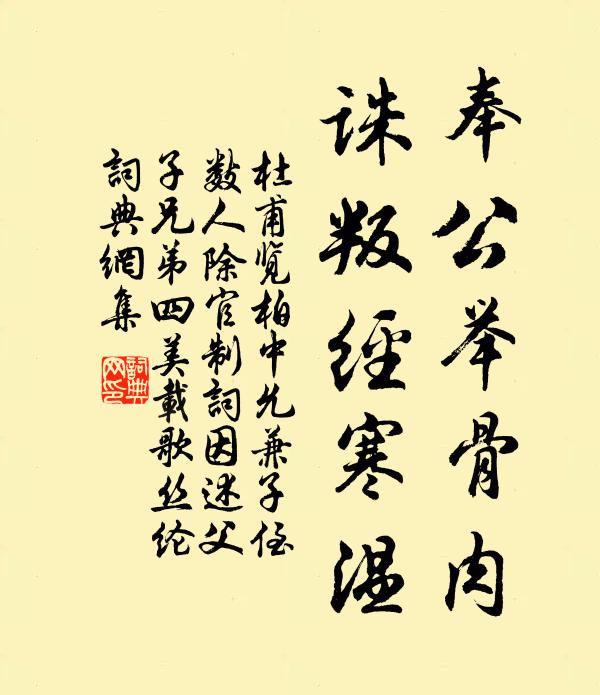 奉公举骨肉
诛叛經寒温
杜甫览柏中允兼子侄
数人除官制詞因述父
子兄弟四美載歌丝纶
詞典網集
詞典
网印